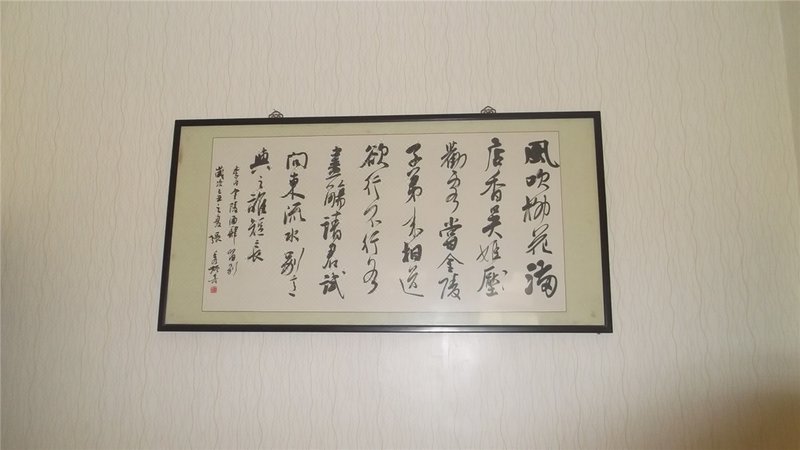 風吹柳花滿
店香吳姬壓
勸客嘗金陵
子弟來相送
欲行不行各
盡觴請君試
問東流水別意
與之誰短長
李白金陵酒肆留別
歲次丑之夏張書